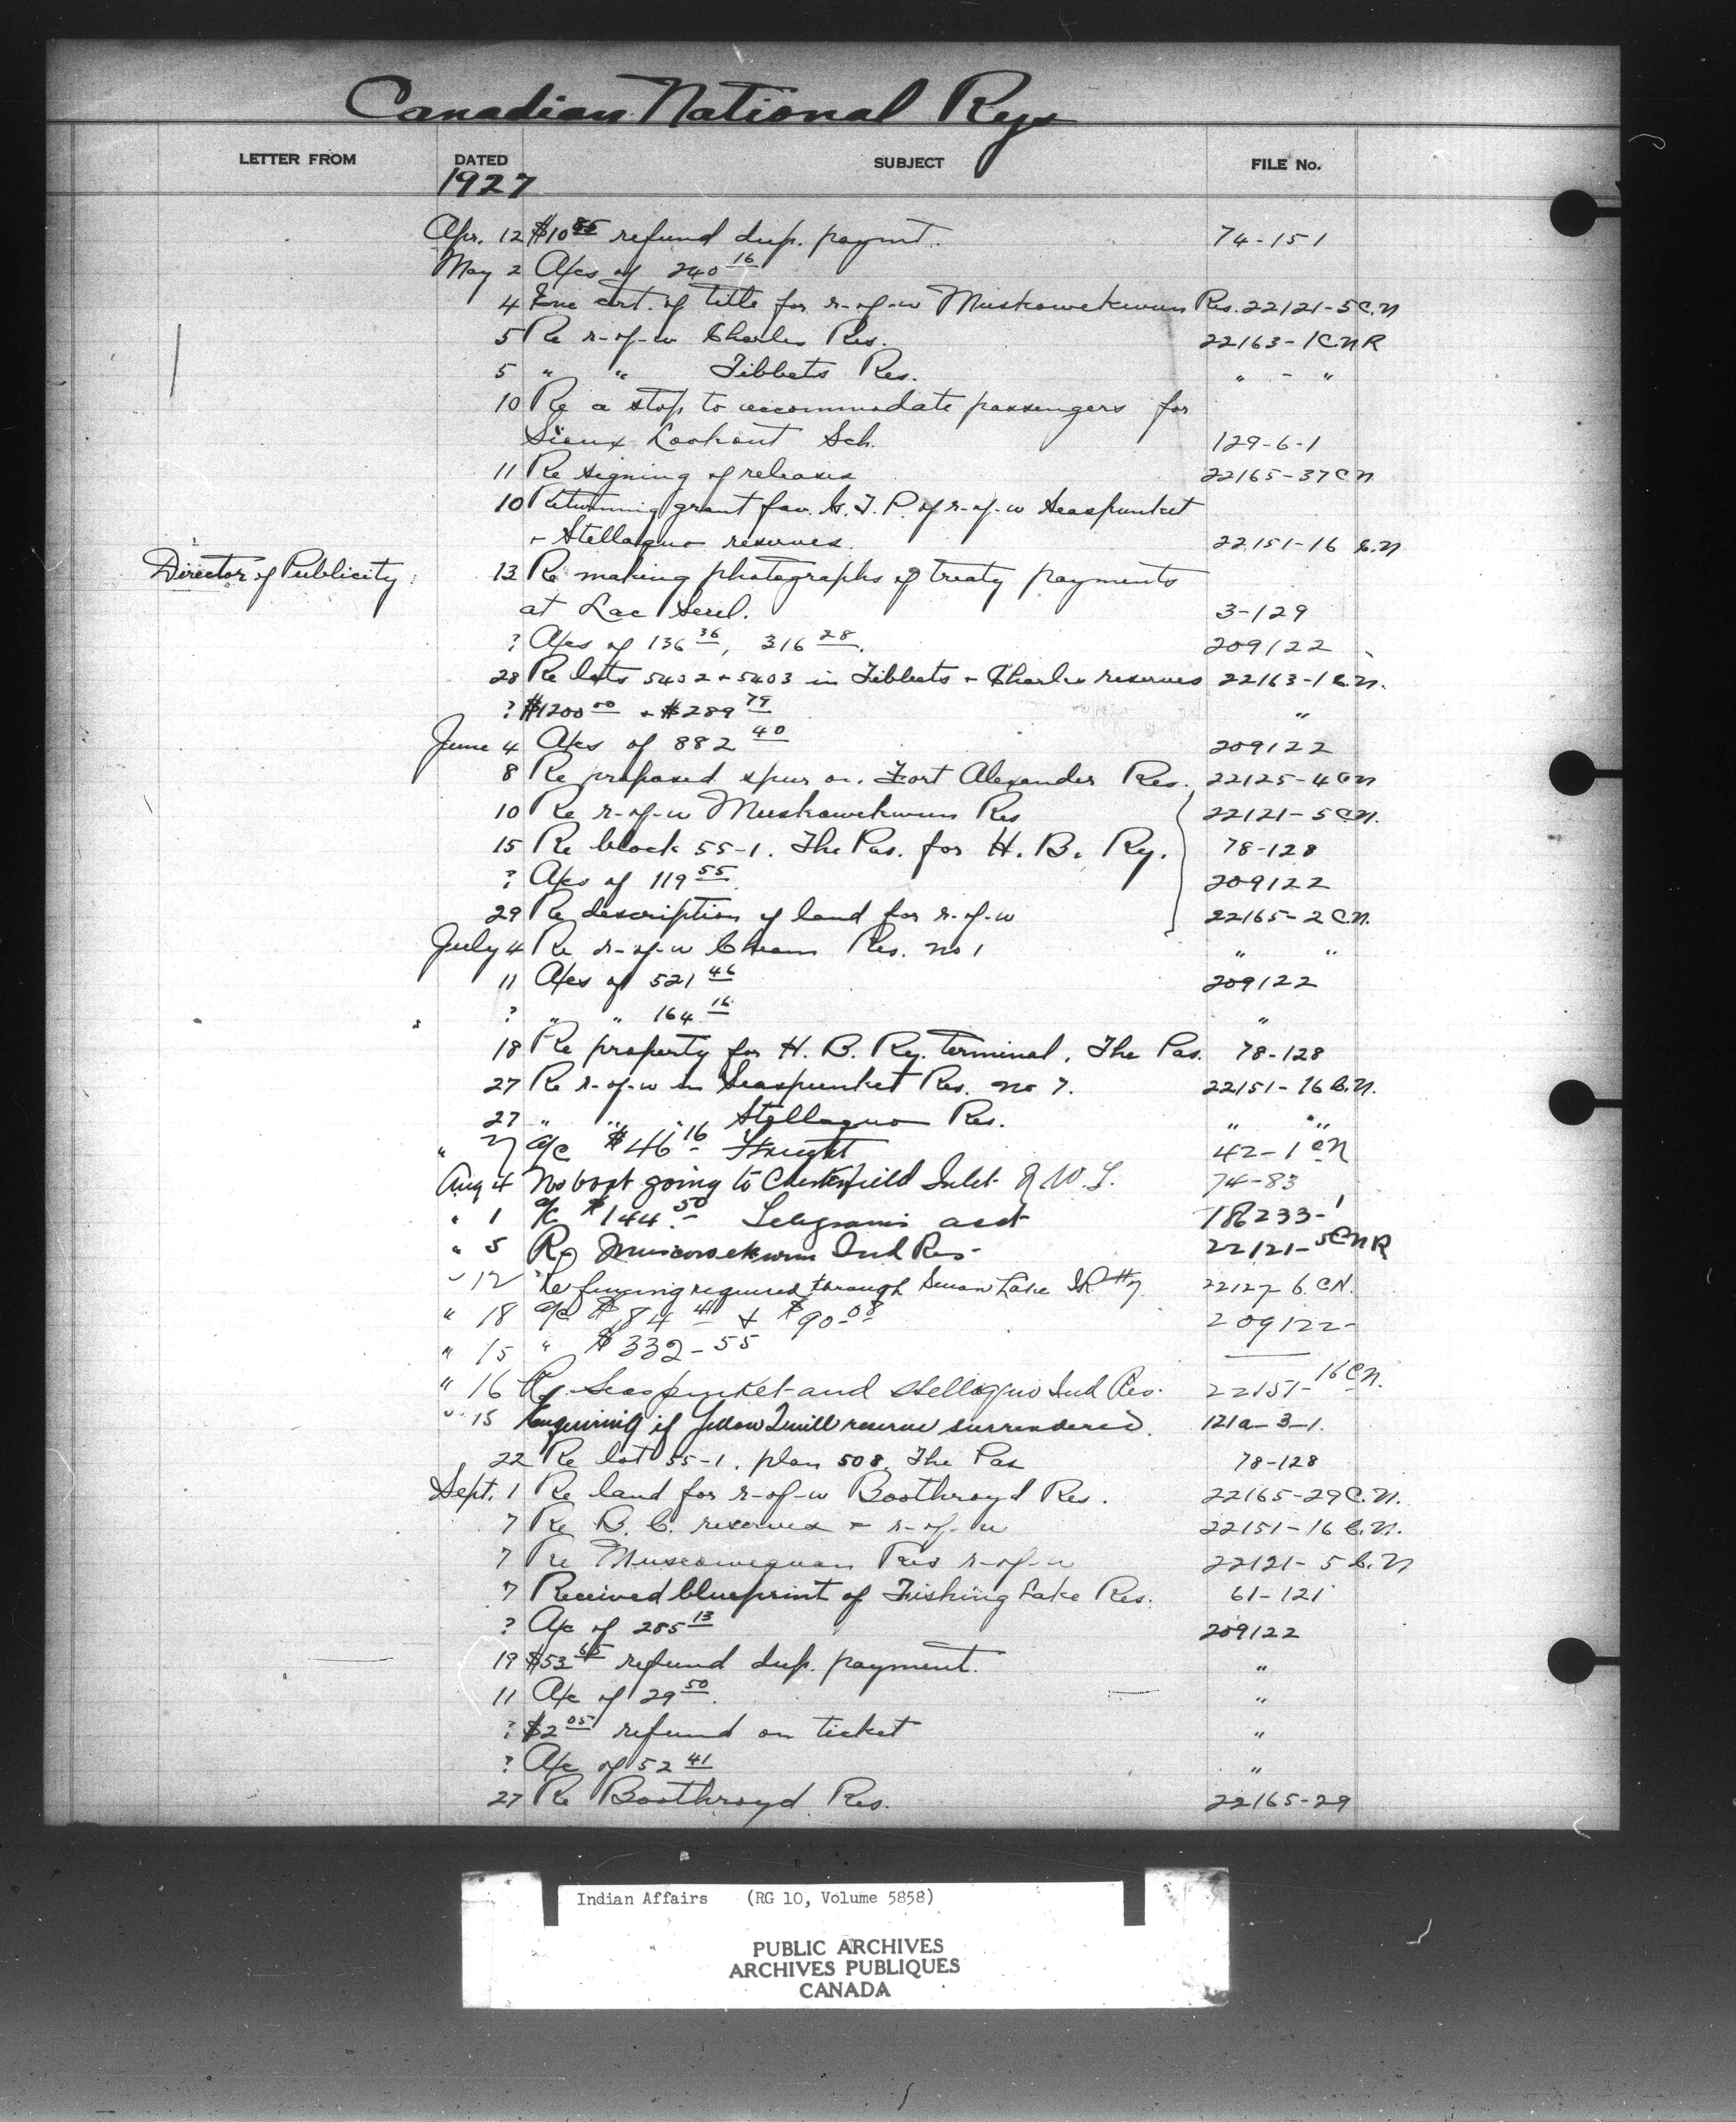 Canadian National Rys
LETTER FROM DATED SUBJECT FILE No.
1927
Apr. 12 $10 85 refund dup. paymt. 74-151
May 2 A/cs of 240 16
4 Enc cert. of title for r-of-w Muskowekwun Res. 22121-5 C.N
5 Re r-of-w Charles Res. 22163-1 CNR
5 " " Tibbets Res. " - "
10 Re a stop to accommodate passengers for
Sioux Lookout Sch. 129-6-1
11 Re signing of releases 22165-37 CN
10 Returning grant fav. G.T.P. of r-of-w Seaspunket
+ Stellaquo reserves. 22151-16 C.N
Director of Publicity 13 Re making photographs of treaty payments
at Lac Seul. 3-129
? A/cs of 136 36, 316 28. 209122
28 Re lots 5402 + 5403 in Tibbets + Charles reserves 22163-1 C.N.
? $1200 00 + $289 79 "
June 4 A/cs of 882 40 209122
8 Re proposed spur on Fort Alexander Res. 22125-4 CN
10 Re r-of-w Muskowekwun Res 22121-5 C.N.
15 Re block 55-1. The Pas. for H. B. Ry. 78-128
? A/cs of 119 55 209122
29 Re description of land for r-of-w 22165-2 C.N.
July 4 Re r-of-w Cheam Res. no 1 " "
11 A/cs of 521 46 209122
? " " 164 16 "
18 Re property for H. B. Ry. terminal, The Pas. 78-128
27 Re r-of-w in Seaspunket Res. no 7. 22151-16 C.N.
27 " " " Stellaquo Res. " "
" 27 a/c $46 16 Freight 42-1 CN
Aug 4 No boat going to Chesterfield Inlet N.W.T. 74-83
" 1 a/c $144.50 Telegrams acct 186233-1
" 5 Re Muscowekwun Ind Res- 22121-5 CNR
" 12 Re fencing required through Swan Lake I.R. #7 22127-6 CN.
" 18 a/c $84 41 + $90-08 209122-
" 15 " $332-55
" 16 Re Seaspunket and Stellaquo Ind Res. 22151-16 CN.
" 15 Enquiring if Yellow Quill reserve surrendered. 121a-3-1.
22 Re lot 55-1. plan 508. The Pas 78-128
Sept. 1 Re land for r-of-w Boothroyd Res. 22165-29 C.N.
7 Re B. C. reserves + r-of-w 22151-16 C.N.
7 Re Muscowequan Res r-of-w 22121-5 C.N
7 Received blueprint of Fishing Lake Res. 61-121
? A/c of 285 13 209122
19 $53 65 refund dup. payment. "
11 A/c of 29 50. "
? $2 05 refund on ticket "
? A/c of 52 41 "
27 Re Boothroyd Res. 22165-29
Indian Affairs (RG 10, Volume 5858)
PUBLIC ARCHIVES
ARCHIVES PUBLIQUES
CANADA